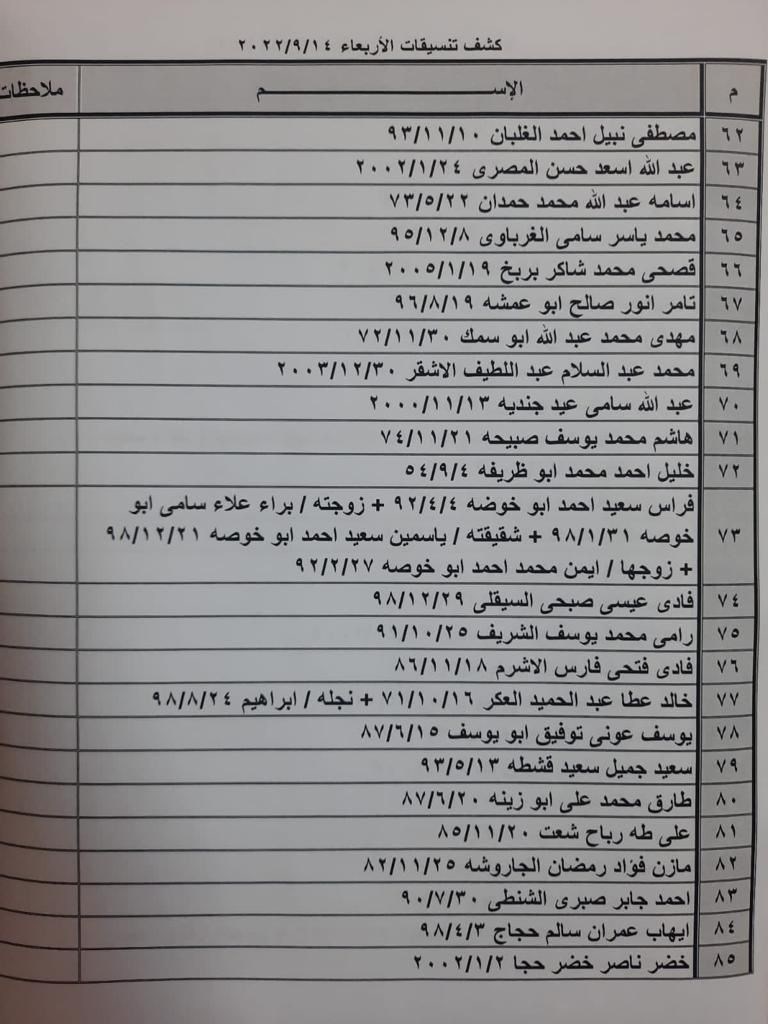 كشف تنسيقات الأربعاء ٢٠٢٢/٩/١٤
م الإســـــــــــــــم ملاحظات
٦٢ مصطفى نبيل احمد الغلبان ٩٣/١١/١٠
٦٣ عبد الله اسعد حسن المصرى ٢٠٠٢/١/٢٤
٦٤ اسامه عبد الله محمد حمدان ٧٣/٥/٢٢
٦٥ محمد ياسر سامى الغرباوى ٩٥/١٢/٨
٦٦ قصحى محمد شاكر بربخ ٢٠٠٥/١/١٩
٦٧ تامر انور صالح ابو عمشه ٩٦/٨/١٩
٦٨ مهدى محمد عبد الله ابو سمك ٧٢/١١/٣٠
٦٩ محمد عبد السلام عبد اللطيف الاشقر ٢٠٠٣/١٢/٣٠
٧٠ عبد الله سامى عيد جنديه ٢٠٠٠/١١/١٣
٧١ هاشم محمد يوسف صبيحه ٧٤/١١/٢١
٧٢ خليل احمد محمد ابو ظريفه ٥٤/٩/٤
فراس سعيد احمد ابو خوضه ٩٢/٤/٤ + زوجته / براء علاء سامى ابو
٧٣ خوصه ٩٨/١/٣١ + شقيقته / ياسمين سعيد احمد ابو خوصه ٩٨/١٢/٢١
+ زوجها / ايمن محمد احمد ابو خوصه ٩٢/٢/٢٧
٧٤ فادى عيسى صبحى السيقلى ٩٨/١٢/٢٩
٧٥ رامى محمد يوسف الشريف ٩١/١٠/٢٥
٧٦ فادى فتحى فارس الاشرم ٨٦/١١/١٨
٧٧ خالد عطا عبد الحميد العكر ٧١/١٠/١٦ + نجله / ابراهيم ٩٨/٨/٢٤
٧٨ يوسف عونى توفيق ابو يوسف ٨٧/٦/١٥
٧٩ سعيد جميل سعيد قشطه ٩٣/٥/١٣
٨٠ طارق محمد على ابو زينه ٨٧/٦/٢٠
٨١ على طه رباح شعت ٨٥/١١/٢٠
٨٢ مازن فؤاد رمضان الجاروشه ٨٢/١١/٢٥
٨٣ احمد جابر صبرى الشنطى ٩٠/٧/٣٠
٨٤ ايهاب عمران سالم حجاج ٩٨/٤/٣
٨٥ خضر ناصر خضر حجا ٢٠٠٢/١/٢